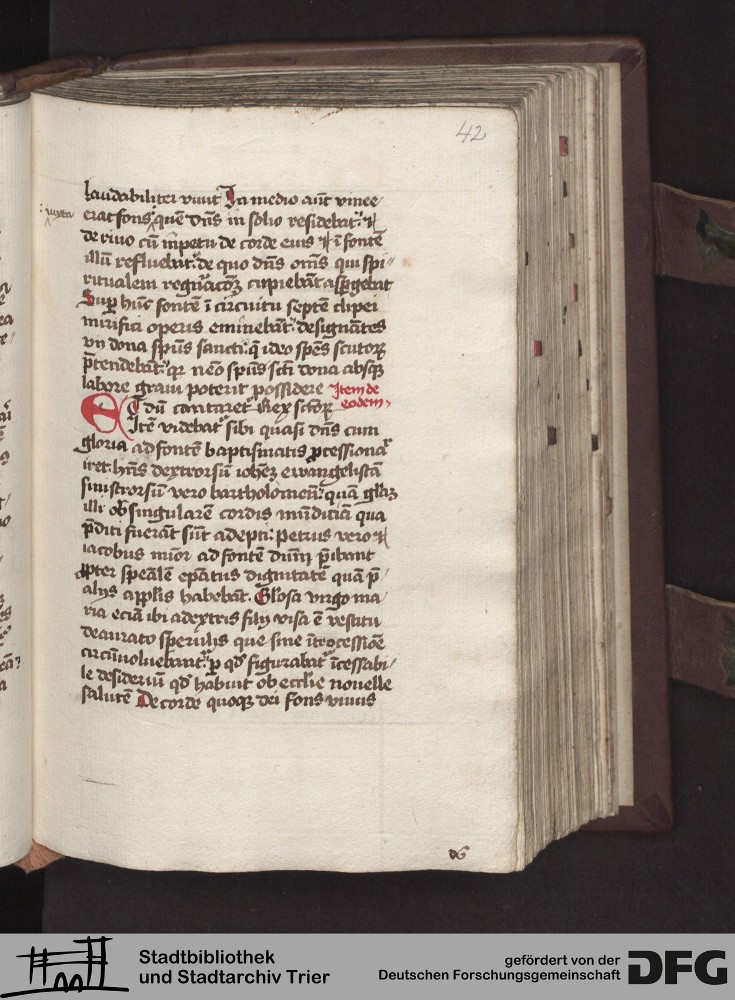 42
laudabiliter viuut In medio aūt vinee
: iuxta
erat fons quē dn̄s in solio residebat: ⁊
de riuo cū īpetu de corde eius ⁊ ī fontē
illū refluebat: de quo dn̄s om̄s qui spi
ritualem cupiebāt aspgebat
Sup hūc fontē ī circuitu septē clipei
mirifici operis eminebāt: designātes
vij dona spūs sancti: q̄ ideo spēs scutoꝝ
p̄tendebāt: qr nēo spūs scī dona absqꝫ
labore graui poterit possidere Item de
eodem
Et dū cantaret Rex scōꝝ
Itē videbat sibi quasi dn̄s cum
gloria ad fontē baptismatis ꝓcessional
iret: hn̄s dextrorsū ioh̄eꝫ ewangelistā
sinistrorsū vero bartholomeū: quā gl̄aꝫ
illi ob singularē cordis mūdiciā qua
p̄diti fuerāt sūt adepti: Petrus vero ⁊
iacobus mīor ad fontē p̄ibant
ꝓpter spēalē dignitatē quā p̄
alijs ap̄lis habebāt. Gl̄osa virgo ma
ria eciā ibi a dextris filij visa ē vestitu
deaurato sperulis que sine ītercessiōe
circūuoluebant: ꝑ qd̄ figurabat īcessabi
le desideriū qd̄ habuit ob eccl̄ie nouelle
salutē De corde quoqꝫ dei fons viuus
Stadtbibliothek
und Stadtarchiv Trier
gefördert von der
Deutschen Forschungsgemeinschaft
DFG